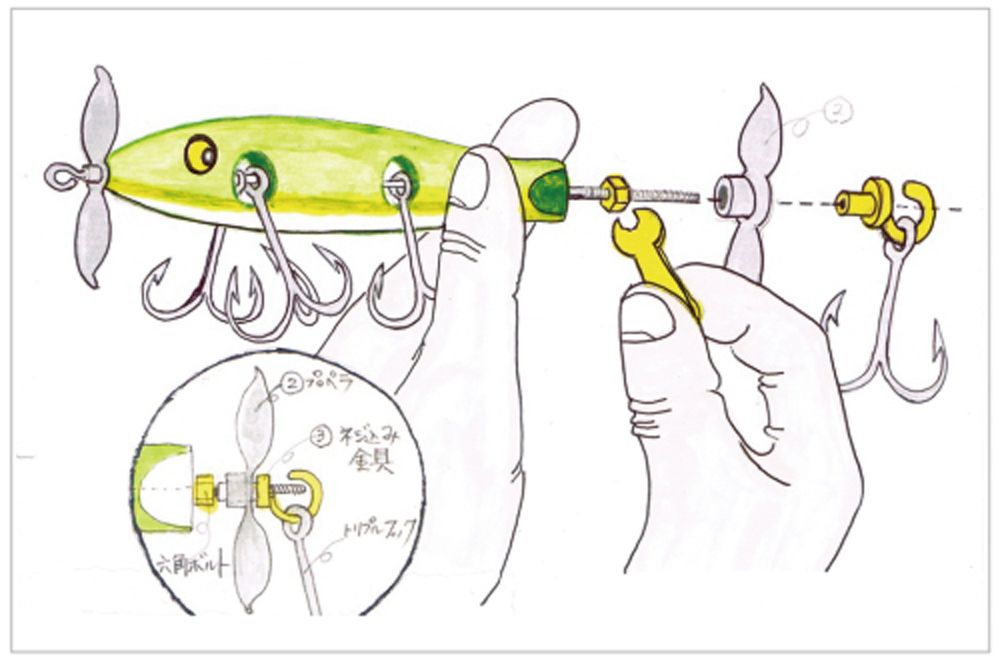 ②
②プロペラ
③ネジ込み
金具
トリプルフック
六角ボルト